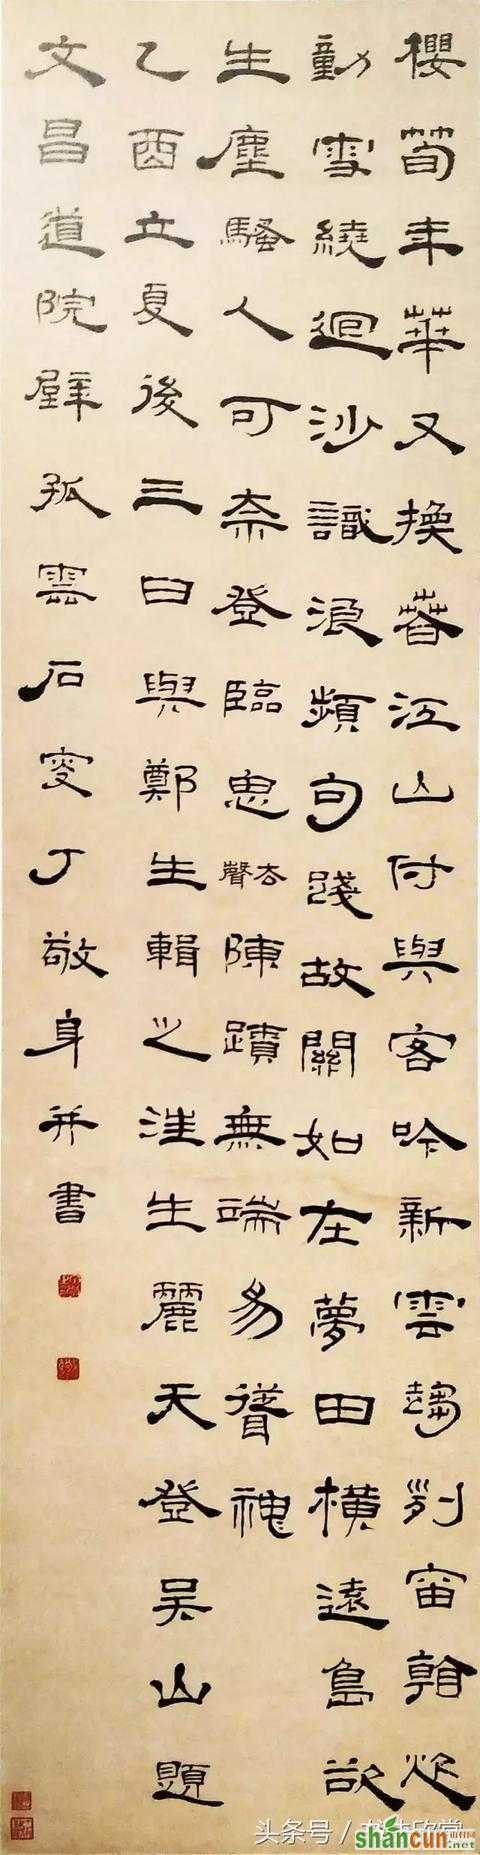 櫻筍年華又換春江山付與客吟新雲趨列宙
動雪繞迴沙識浪頻句踐故關如在夢田橫遠島欲
生塵騷人可奈登臨思去聲陳蹟無端易神
乙酉立夏後三日與鄭生輯之汪生麗天登吳山題
文昌道院壁孤雲石叟丁敬身并書
头条号 /
shancun
.net